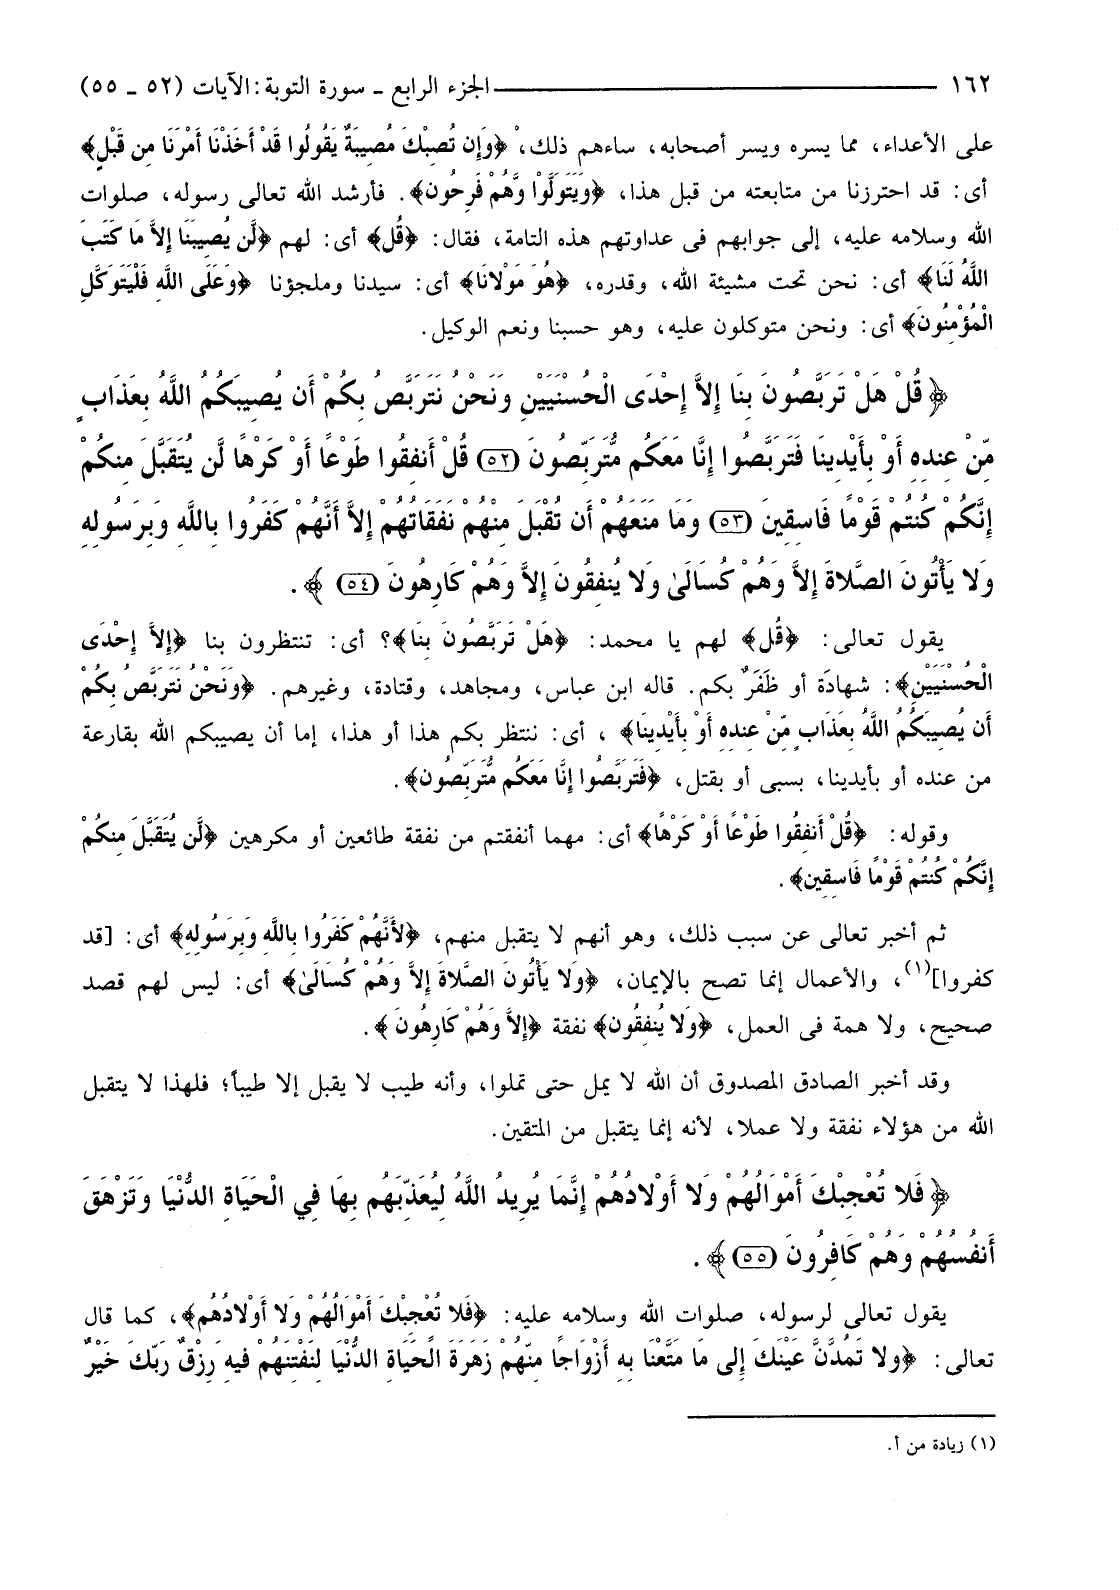 ١٦٢ ــــــــــــــــــــ الجزء الرابع ـ سورة التوبة: الآيات (٥٢ ـ ٥٥)
على الأعداء، مما يسره ويسر أصحابه، ساءهم ذلك، ﴿وَإِن تُصِبْكَ مُصِيبَةٌ يَقُولُوا قَدْ أَخَذْنَا أَمْرَنَا مِن قَبْلُ﴾
أى: قد احترزنا من متابعته من قبل هذا، ﴿وَيَتَوَلَّوْا وَّهُمْ فَرِحُون﴾. فأرشد الله تعالى رسوله، صلوات
الله وسلامه عليه، إلى جوابهم فى عداوتهم هذه التامة، فقال: ﴿قُل﴾ أى: لهم ﴿لَن يُصِيبَنَا إِلاَّ مَا كَتَبَ
اللَّهُ لَنَا﴾ أى: نحن تحت مشيئة الله، وقدره، ﴿هُوَ مَوْلانَا﴾ أى: سيدنا وملجؤنا ﴿وَعَلَى اللَّهِ فَلْيَتَوَكَّلِ
الْمُؤْمِنُونَ﴾ أى: ونحن متوكلون عليه، وهو حسبنا ونعم الوكيل.
﴿قُلْ هَلْ تَرَبَّصُونَ بِنَا إِلاَّ إِحْدَى الْحُسْنَيَيْنِ وَنَحْنُ نَتَرَبَّصُ بِكُمْ أَن يُصِيبَكُمُ اللَّهُ بِعَذَابٍ
مِّنْ عِندِهِ أَوْ بِأَيْدِينَا فَتَرَبَّصُوا إِنَّا مَعَكُم مُّتَرَبِّصُونَ (٥٢) قُلْ أَنفِقُوا طَوْعًا أَوْ كَرْهًا لَّن يُتَقَبَّلَ مِنكُمْ
إِنَّكُمْ كُنتُمْ قَوْمًا فَاسِقِينَ (٥٣) وَمَا مَنَعَهُمْ أَن تُقْبَلَ مِنْهُمْ نَفَقَاتُهُمْ إِلاَّ أَنَّهُمْ كَفَرُوا بِاللَّهِ وَبِرَسُولِهِ
وَلا يَأْتُونَ الصَّلاةَ إِلاَّ وَهُمْ كُسَالَىٰ وَلا يُنفِقُونَ إِلاَّ وَهُمْ كَارِهُونَ (٥٤)﴾.
يقول تعالى: ﴿قُل﴾ لهم يا محمد: ﴿هَلْ تَرَبَّصُونَ بِنَا﴾؟ أى: تنتظرون بنا ﴿إِلاَّ إِحْدَى
الْحُسْنَيَيْنِ﴾: شهادَة أو ظَفَرٌ بكم. قاله ابن عباس، ومجاهد، وقتادة، وغيرهم. ﴿وَنَحْنُ نَتَرَبَّصُ بِكُمْ
أَن يُصِيبَكُمُ اللَّهُ بِعَذَابٍ مِّنْ عِندِهِ أَوْ بِأَيْدِينَا﴾ ، أى: ننتظر بكم هذا أو هذا، إما أن يصيبكم الله بقارعة
من عنده أو بأيدينا، بسبى أو بقتل، ﴿فَتَرَبَّصُوا إِنَّا مَعَكُم مُّتَرَبِّصُون﴾.
وقوله: ﴿قُلْ أَنفِقُوا طَوْعًا أَوْ كَرْهًا﴾ أى: مهما أنفقتم من نفقة طائعين أو مكرهين ﴿لَّن يُتَقَبَّلَ مِنكُمْ
إِنَّكُمْ كُنتُمْ قَوْمًا فَاسِقِين﴾.
ثم أخبر تعالى عن سبب ذلك، وهو أنهم لا يتقبل منهم، ﴿لأَنَّهُمْ كَفَرُوا بِاللَّهِ وَبِرَسُولِهِ﴾ أى: [قد
كفروا](١)، والأعمال إنما تصح بالإيمان، ﴿وَلا يَأْتُونَ الصَّلاةَ إِلاَّ وَهُمْ كُسَالَىٰ﴾ أى: ليس لهم قصد
صحيح، ولا همة فى العمل، ﴿وَلا يُنفِقُون﴾ نفقة ﴿إِلاَّ وَهُمْ كَارِهُونَ﴾.
وقد أخبر الصادق المصدوق أن الله لا يمل حتى تملوا، وأنه طيب لا يقبل إلا طيباً؛ فلهذا لا يتقبل
الله من هؤلاء نفقة ولا عملا، لأنه إنما يتقبل من المتقين.
﴿فَلا تُعْجِبْكَ أَمْوَالُهُمْ وَلا أَوْلادُهُمْ إِنَّمَا يُرِيدُ اللَّهُ لِيُعَذِّبَهُم بِهَا فِي الْحَيَاةِ الدُّنْيَا وَتَزْهَقَ
أَنفُسُهُمْ وَهُمْ كَافِرُونَ (٥٥)﴾.
يقول تعالى لرسوله، صلوات الله وسلامه عليه: ﴿فَلا تُعْجِبْكَ أَمْوَالُهُمْ وَلا أَوْلادُهُم﴾، كما قال
تعالى: ﴿وَلا تَمُدَّنَّ عَيْنَكَ إِلَى مَا مَتَّعْنَا بِهِ أَزْوَاجاً مِّنْهُمْ زَهْرَةَ الْحَيَاةِ الدُّنْيَا لِنَفْتِنَهُمْ فِيهِ وَرِزْقُ رَبِّكَ خَيْرٌ
(١) زيادة من أ.